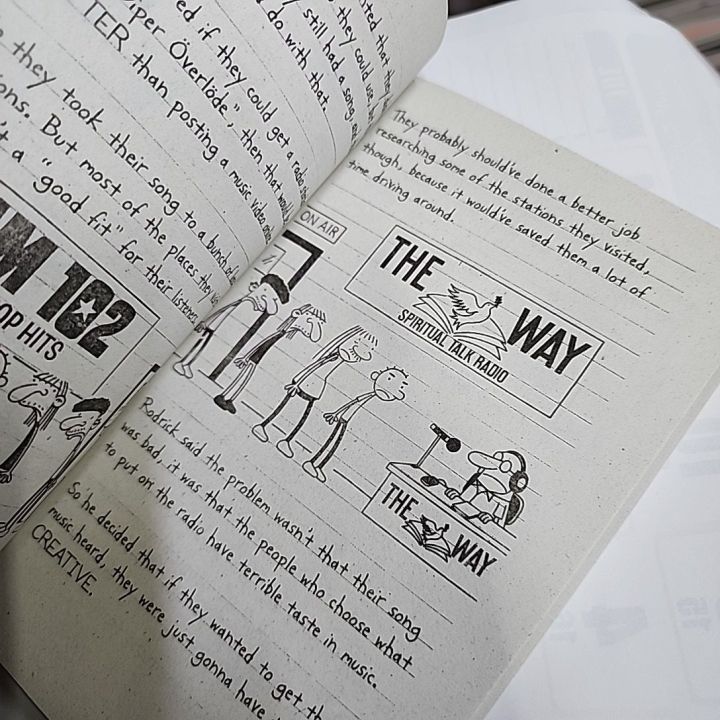 ted that they
they could use,
still had a song
do with that.
ed if they could get a radio
iper Överlöde", then that would
TER than posting a music video
they took their song to a bunch
ons. But most of the places they
t a "good fit" for their listeners
M 102
OP HITS
They probably should've done a better job
researching some of the stations they visited,
though, because it would've saved them a lot of
time driving around.
ON AIR
THE WAY
SPIRITUAL TALK RADIO
THE WAY
Rodrick said the problem wasn't that their song
was bad, it was that the people who choose what
to put on the radio have terrible taste in music.
So he decided that if they wanted to get th
music heard, they were just gonna have
CREATIVE.